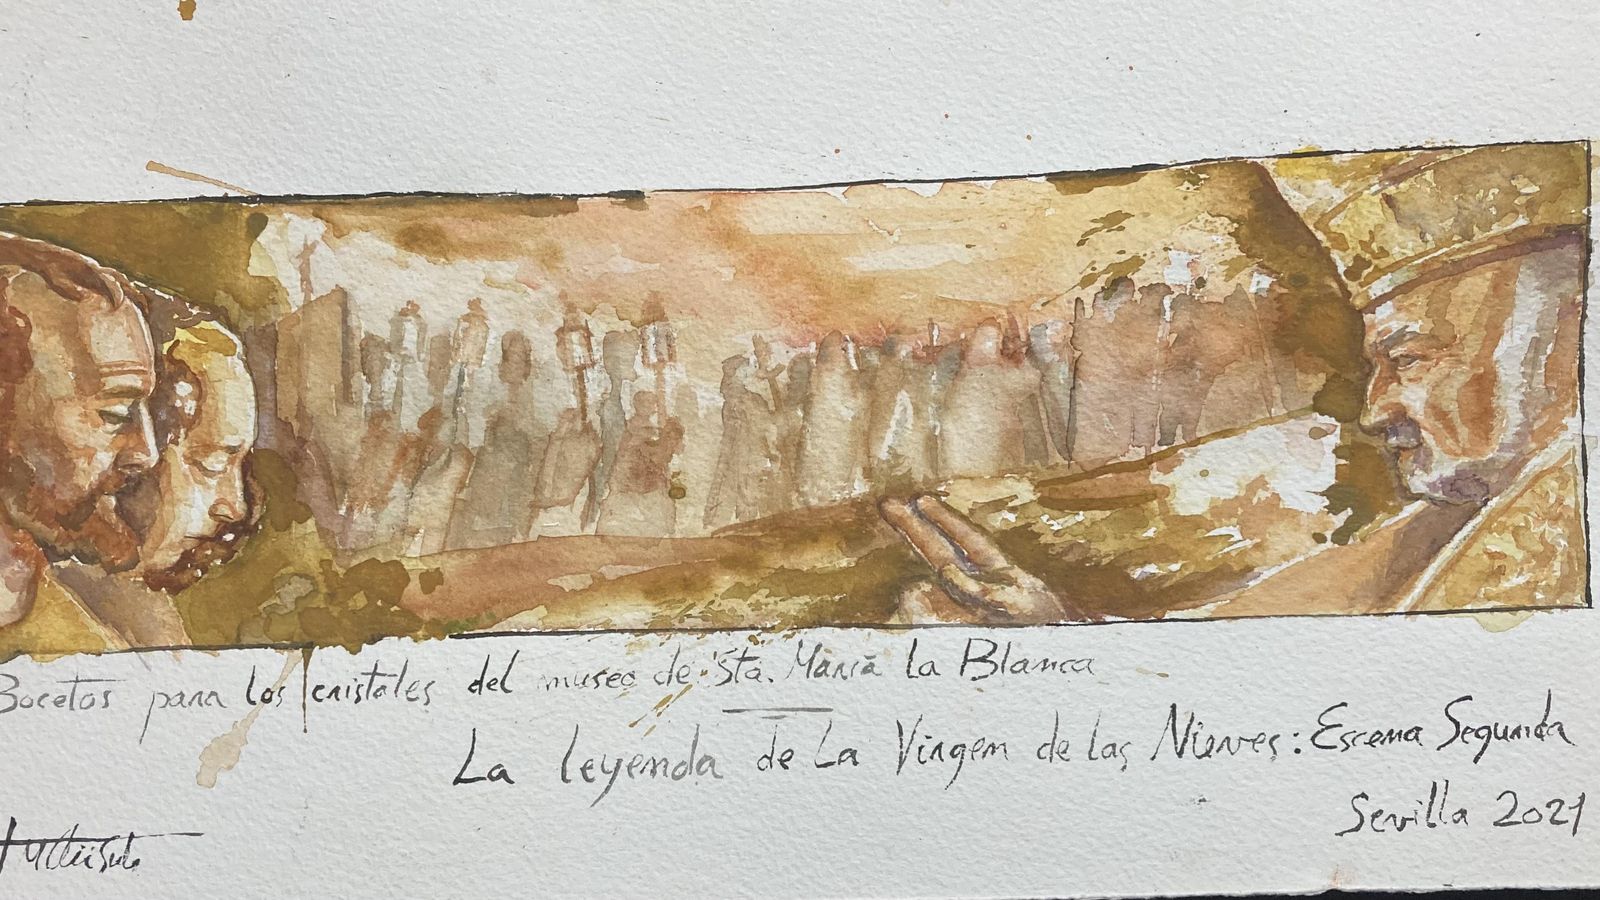 Bocetos para los cristales del museo de Sta. María La Blanca
La leyenda de La Virgen de las Nieves: Escena Segunda
Sevilla 2021